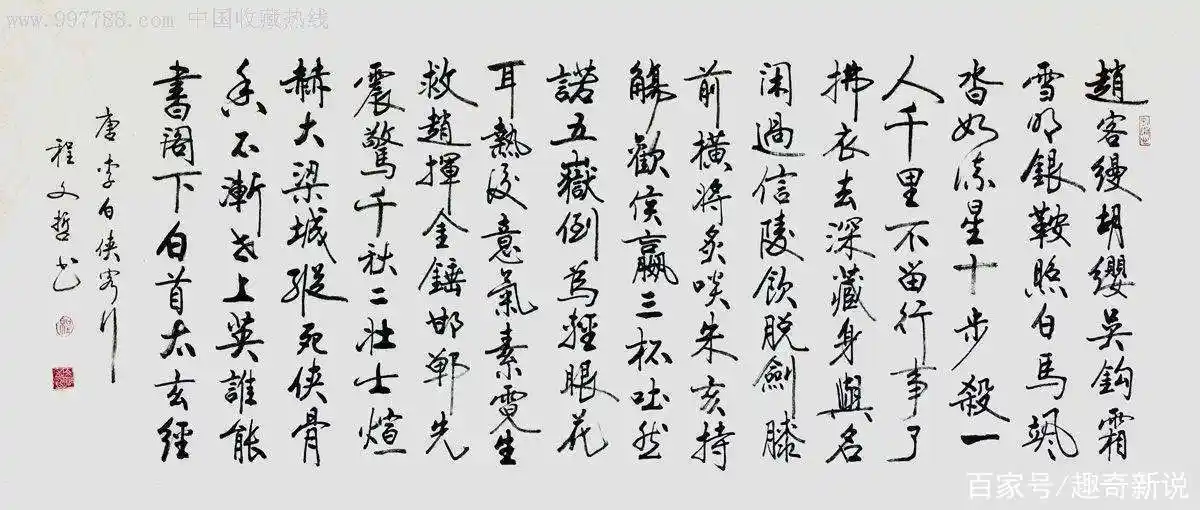 www.997788.com 中国收藏热线
趙客縵胡纓吳鈎霜
雪明銀鞍照白馬颯
沓如流星十步殺一
人千里不留行事了
拂衣去深藏身與名
閑過信陵飲脫劍膝
前橫將炙啖朱亥持
觴歡侯嬴三杯吐然
諾五嶽倒為輕眼花
耳熱後意氣素霓生
救趙揮金錘邯鄲先
震驚千秋二壯士煊
赫大梁城縱死俠骨
香不漸世上英誰能
書閣下白首太玄經
唐李白俠客行
程文哲书
百家号/趣奇新说